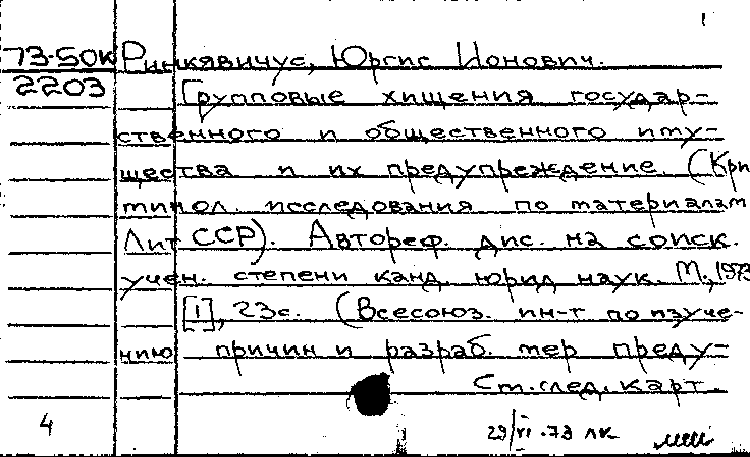 1
73-50к Ринкявичус, Юргис Ионович.
2203 Групповые хищения государ-
ственного и общественного иму-
щества и их предупреждение. (Кри
минол. исследования по материалам
Лит ССР). Автореф. дис. на соиск.
учен. степени канд. юрид наук. М., 1973
[1], 23с. (Всесоюз. ин-т по изуче-
нию причин и разраб. мер преду-
См.след. карт.
4 29/VI.73 лк